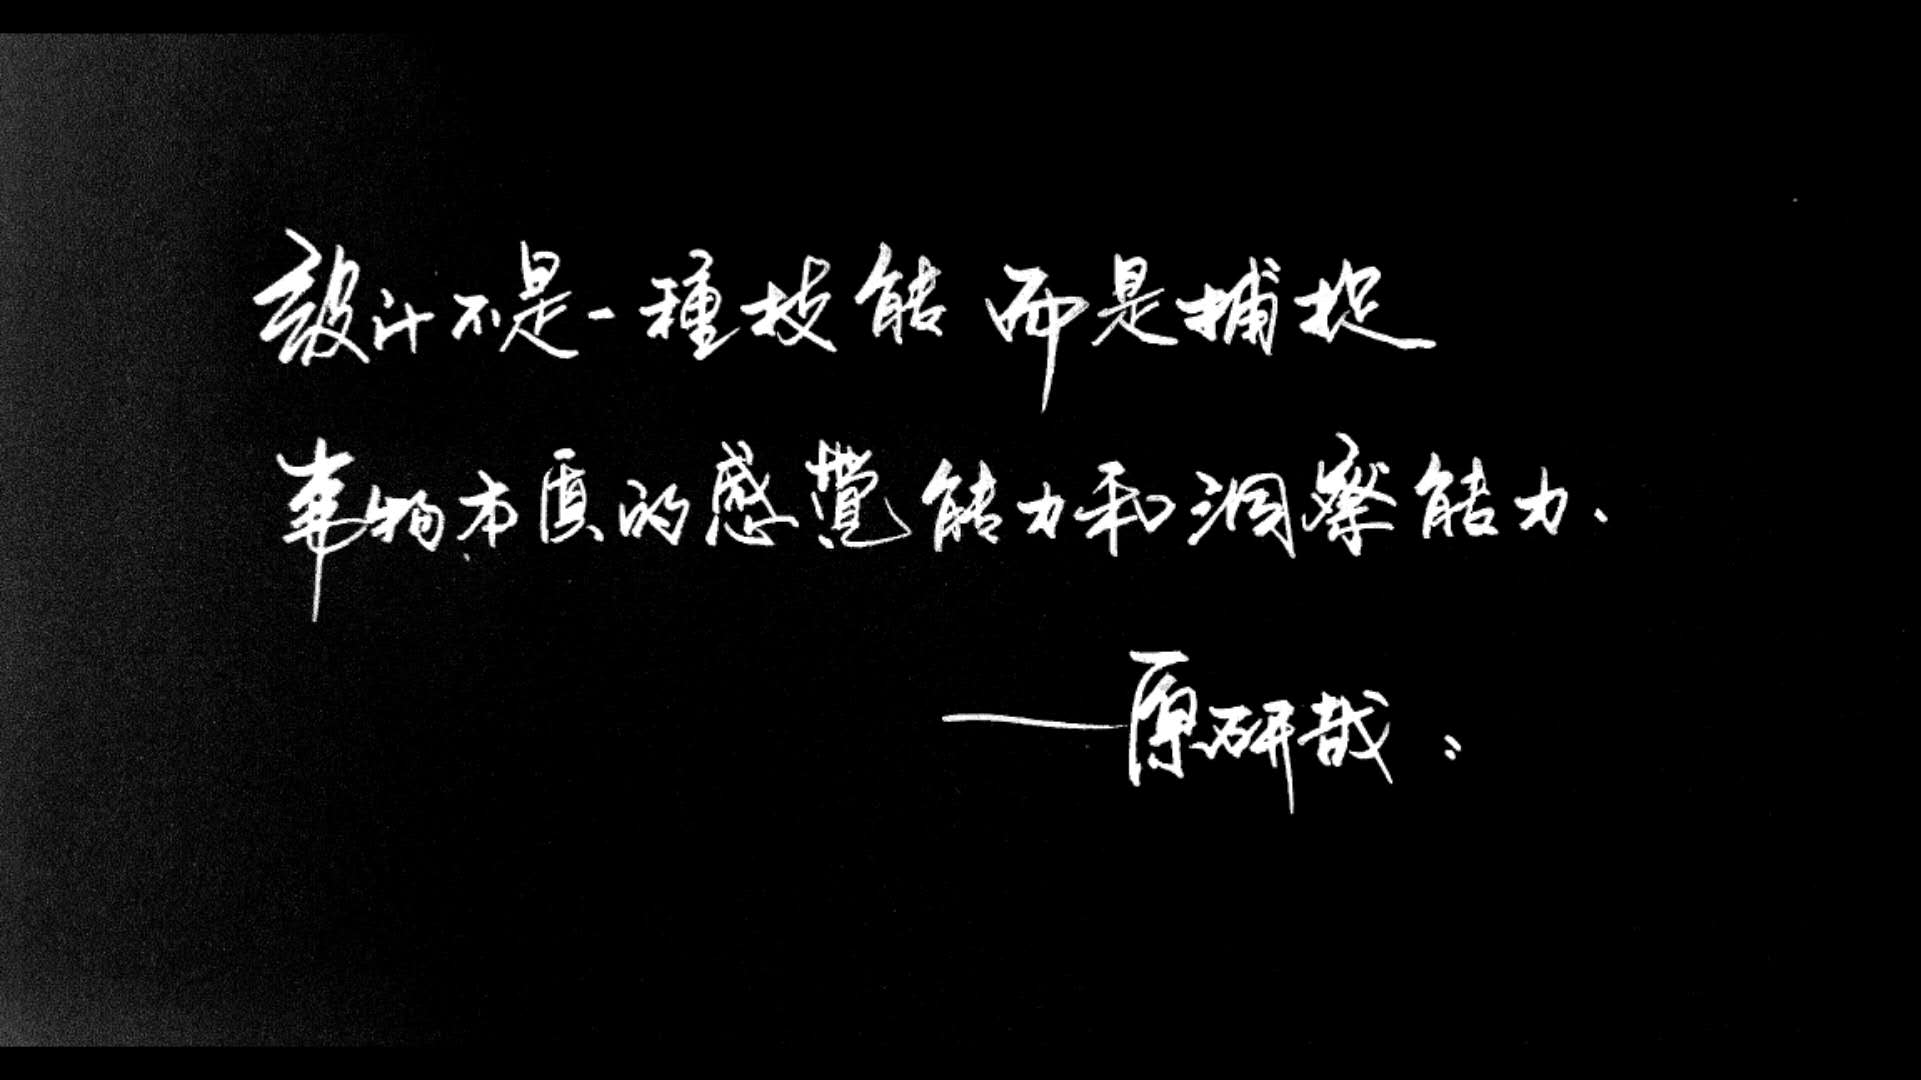 設计不是一種技能 而是捕捉
事物本质的感覺能力和洞察能力、
——原研哉